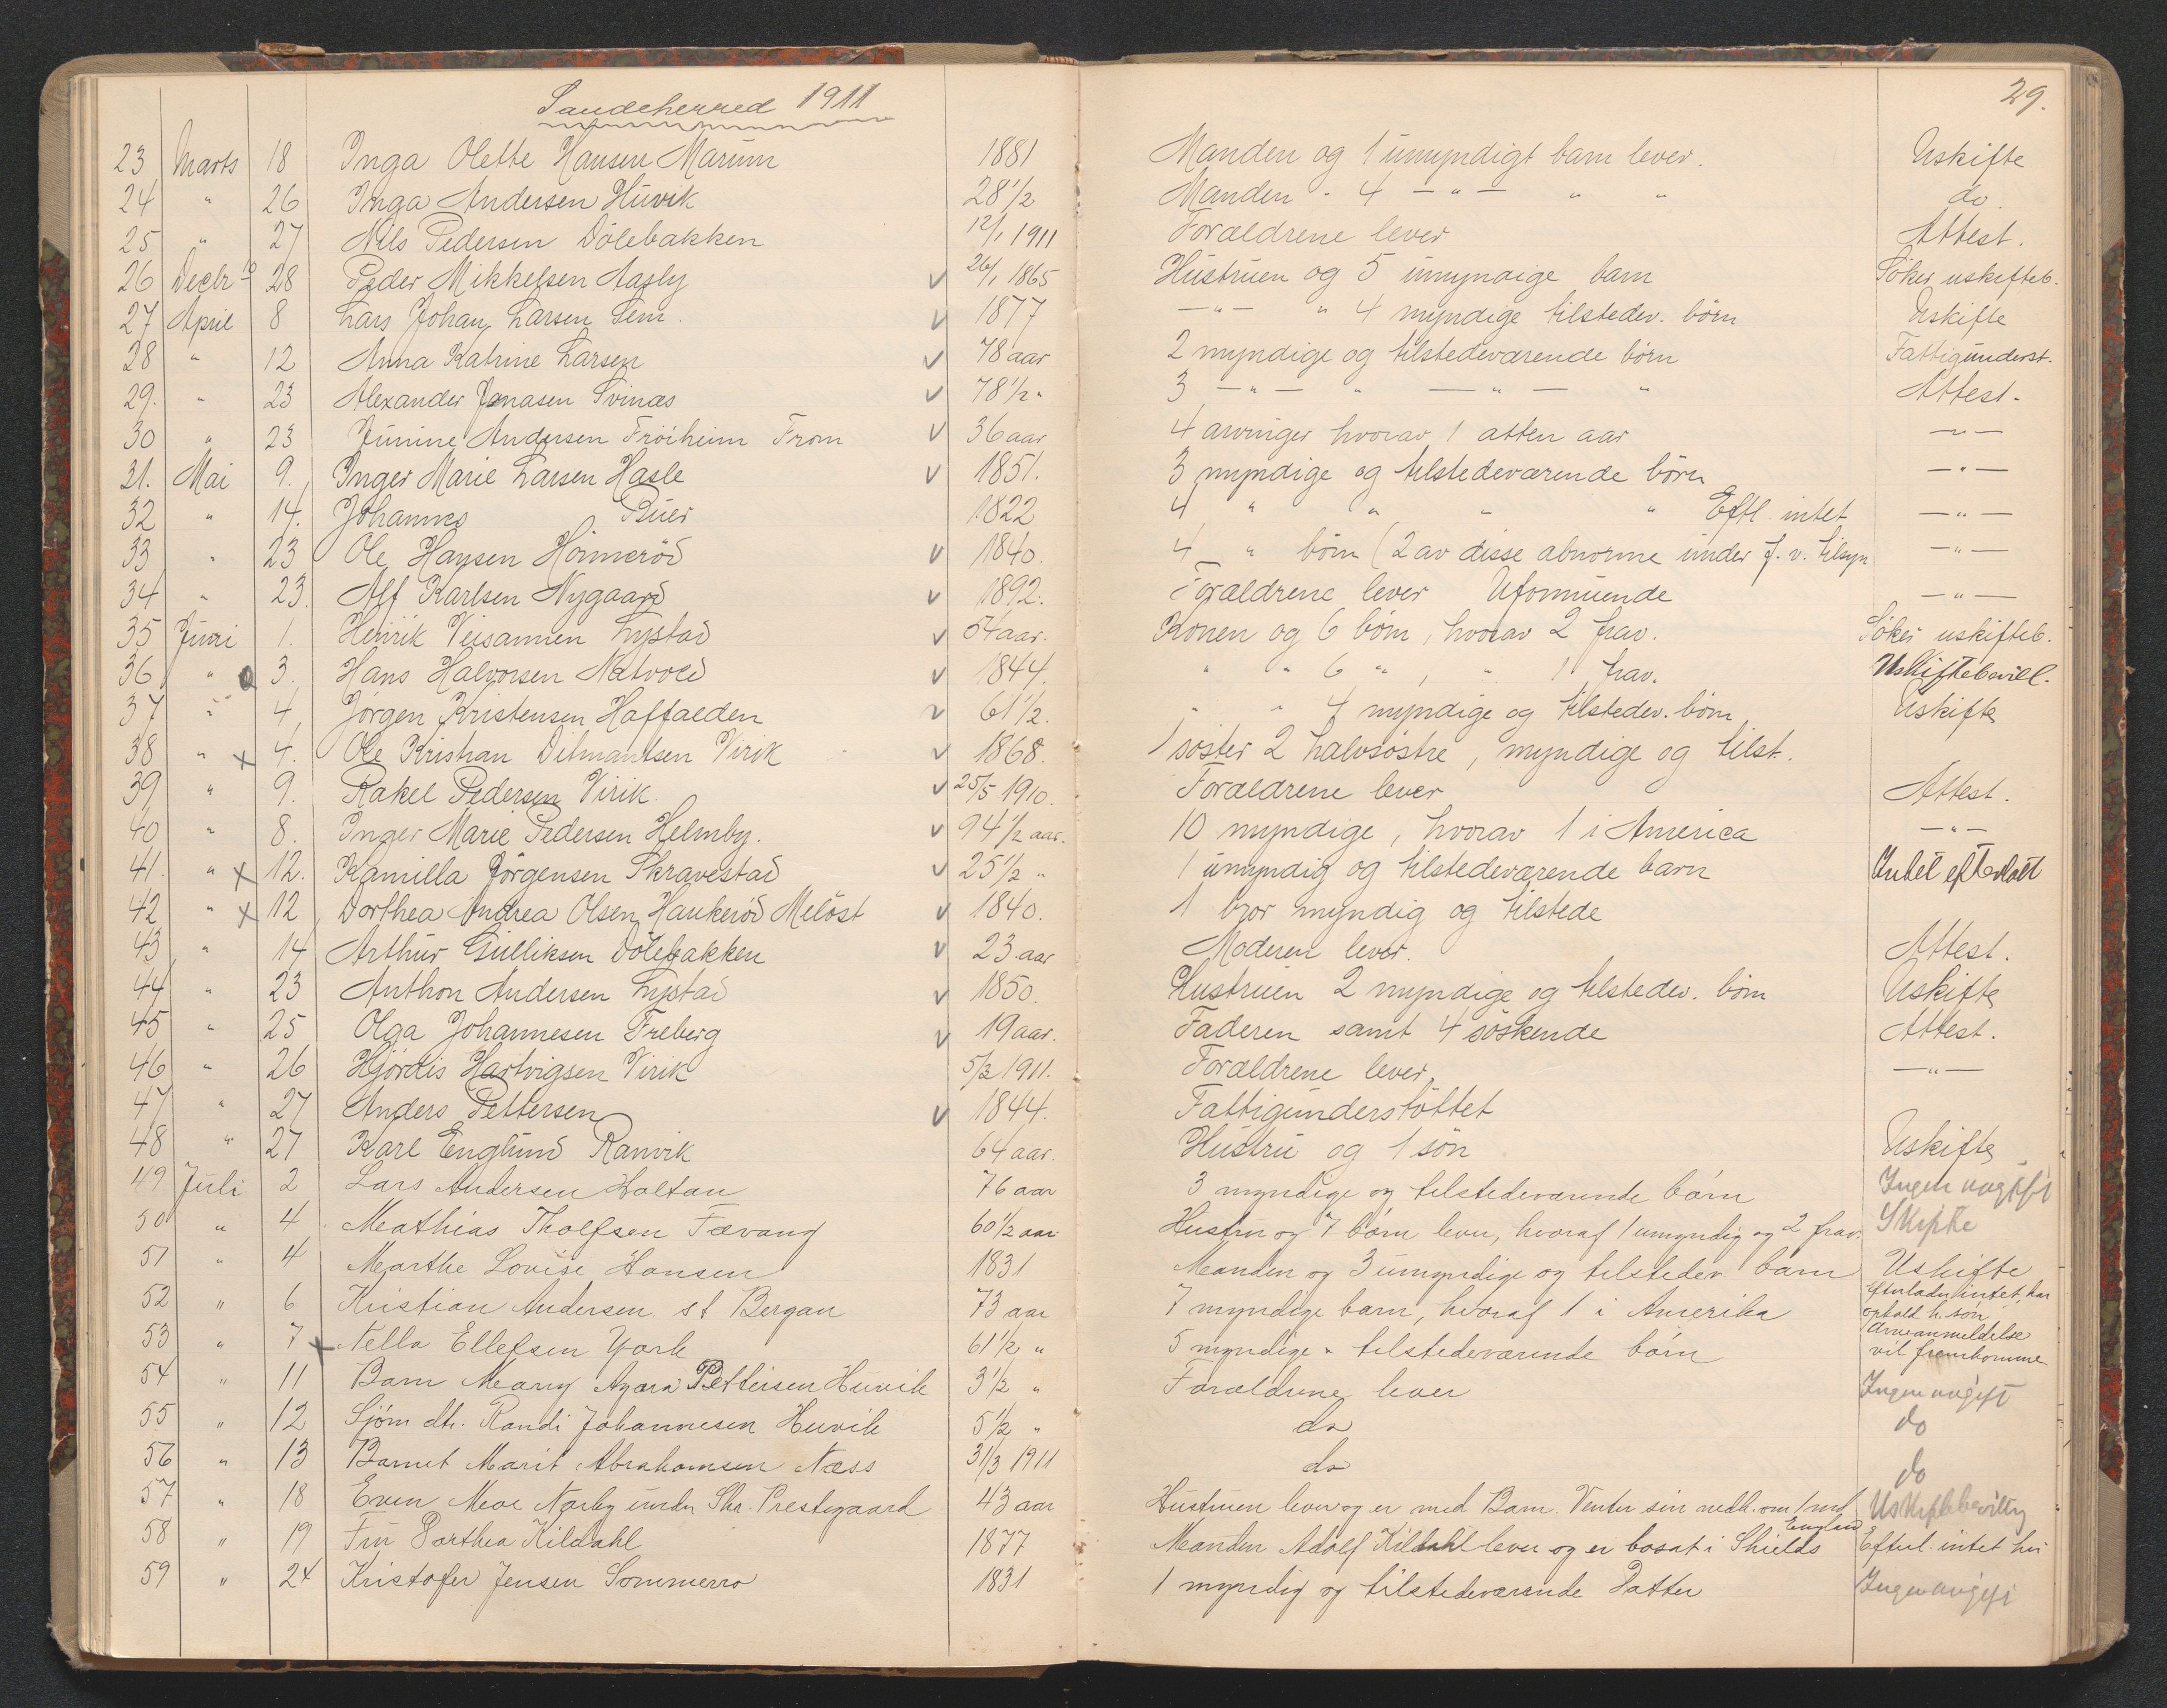 Sandeherred 1911
29.
23 Marts 18 Inga Olette Hansen Marum 1881 Manden og 1 umyndigt barn lever. Uskifte
24 " 26 Inga Andersen Huvik 28 1/2 Manden " 4 — " — " " do.
25 " 27 Nils Pedersen Dölebakken 12/1 1911 Forældrene lever Attest.
26 Decbr 10 28 Peder Mikkelsen Aasly v 26/1 1865 Hustruen og 5 umyndige barn Söker uskifteb.
27 April 8 Lars Johan Larsen Sem. v 1877 — " — " 4 myndige tilstedev. börn Uskifte
28 " 12 Anna Katrine Larsen v 78 aar 2 myndige og tilstedeværende börn Fattigunderst.
29. " 23 Alexander Jonasen Svinæs v 78 1/2 " 3 — " — " — " — " Attest.
30 " 23 Junine Andersen Fröiheim From v 36 aar 4 arvinger hvorav 1 atten aar — " —
31. Mai 9. Inger Marie Larsen Hasle v 1851. 3 myndige og tilstedeværende börn — " —
32 " 14. Johannes Buer 1822 4 " " " " Eftl. intet — " —
33 " 23 Ole Hansen Hörmeröd v 1840. 4 " börn (2 av disse abnorme under f. v. tilsyn — " —
34 " 23. Alf Karlsen Nygaard v 1892. Forældrene lever Uformuende — " —
35 Juni 1. Henrik Lystad v 54 aar. Konen og 6 börn, hvorav 2 frav. Söker uskifteb.
36 " 3. Hans Halvorsen v 1844. " " 6 " , " 1 frav. Uskiftebevill.
37 " 4, Jörgen Kristensen Haffalden v 61 1/2. " " 4 myndige og tilstedev. börn Uskifte
38 " x 4. Ole Kristian Ditmantsen Virik v 1868. 1 söster 2 halvsöstre, myndige og tilst.
39 " 9. Rakel Pedersen Virik. v 25/5 1910. Forældrene lever Attest.
40 " 8. Inger Marie Pedersen Helmby. v 94 1/2 aar. 10 myndige, hvorav 1 i America — " —
41. " x 12. Kamilla Jörgensen Skravestad v 25 1/2 " 1 umyndig og tilstedeværende barn Intet efterladt
42 " x 12 Dorthea Andrea Olsen Haukeröd Melöst v 1840. 1 bror myndig og tilstede
43 " 14 Arthur Gulliksen Dölebakken v 23 aar Moderen lever. Attest.
44 " 23 Anthon Andersen Lystad v 1850. Hustruen 2 myndige og tilstedev. börn Uskifte
45 " 25 Olga Johannesen Freberg v 19 aar. Faderen samt 4 söskende Attest.
46 " 26 Hjördis Hartvigsen Virik 5/3 1911. Forældrene lever. — " —
47 " 27 Anders Pettersen v 1844. Fattigunderstöttet
48 " 27 Karl Englund Ranvik 64 aar. Hustru og 1 sön Uskifte
49 Juli 2 Lars Andersen Holtan 76 aar 3 myndige og tilstedeværende börn Ingen avgift
50 " 4 Mathias Tholfsen Fævang 60 1/2 aar Hustru og 7 börn lever, hvoraf 1 umyndig og 2 frav. Skifte
51 " 4 Marthe Lovise Hansen 1831 Manden og 3 umyndige og tilstedev börn Uskifte
52 " 6 Kristian Andersen st Bergan 73 aar 7 myndige barn, hvoraf 1 i Amerika Efterlader intet, har ophold h. sön
53 " 7 x Nella Ellefsen York 61 1/2 " 5 myndige " tilstedeværende börn Arveanmeldelse vil fremkomme
54 " 11 Barn Meary Agora Pettersen Huvik 3 1/2 " Forældrene lever Ingen avgift
55 " 12 Sjöm dtr. Randi Johannesen Huvik 5 1/2 " do do
56 " 13 Barnet Marit Abrahamsen Næss 31/3 1911 do do
57 " 18 Even Moe Nærby under Skr. Prestegaard 43 aar Hustruen lever og er med Barn. Venter sin nedk. om 1 md Uskiftebevilling
58 " 19 Fru Dorthea Kildahl 1877 Manden Adolf Kildahl lever og er bosat i Shields England Efterl. intet her
59 " 24 Kristofer Jensen Sommerro 1831 1 myndig og tilstedeværende Datter Ingen avgift